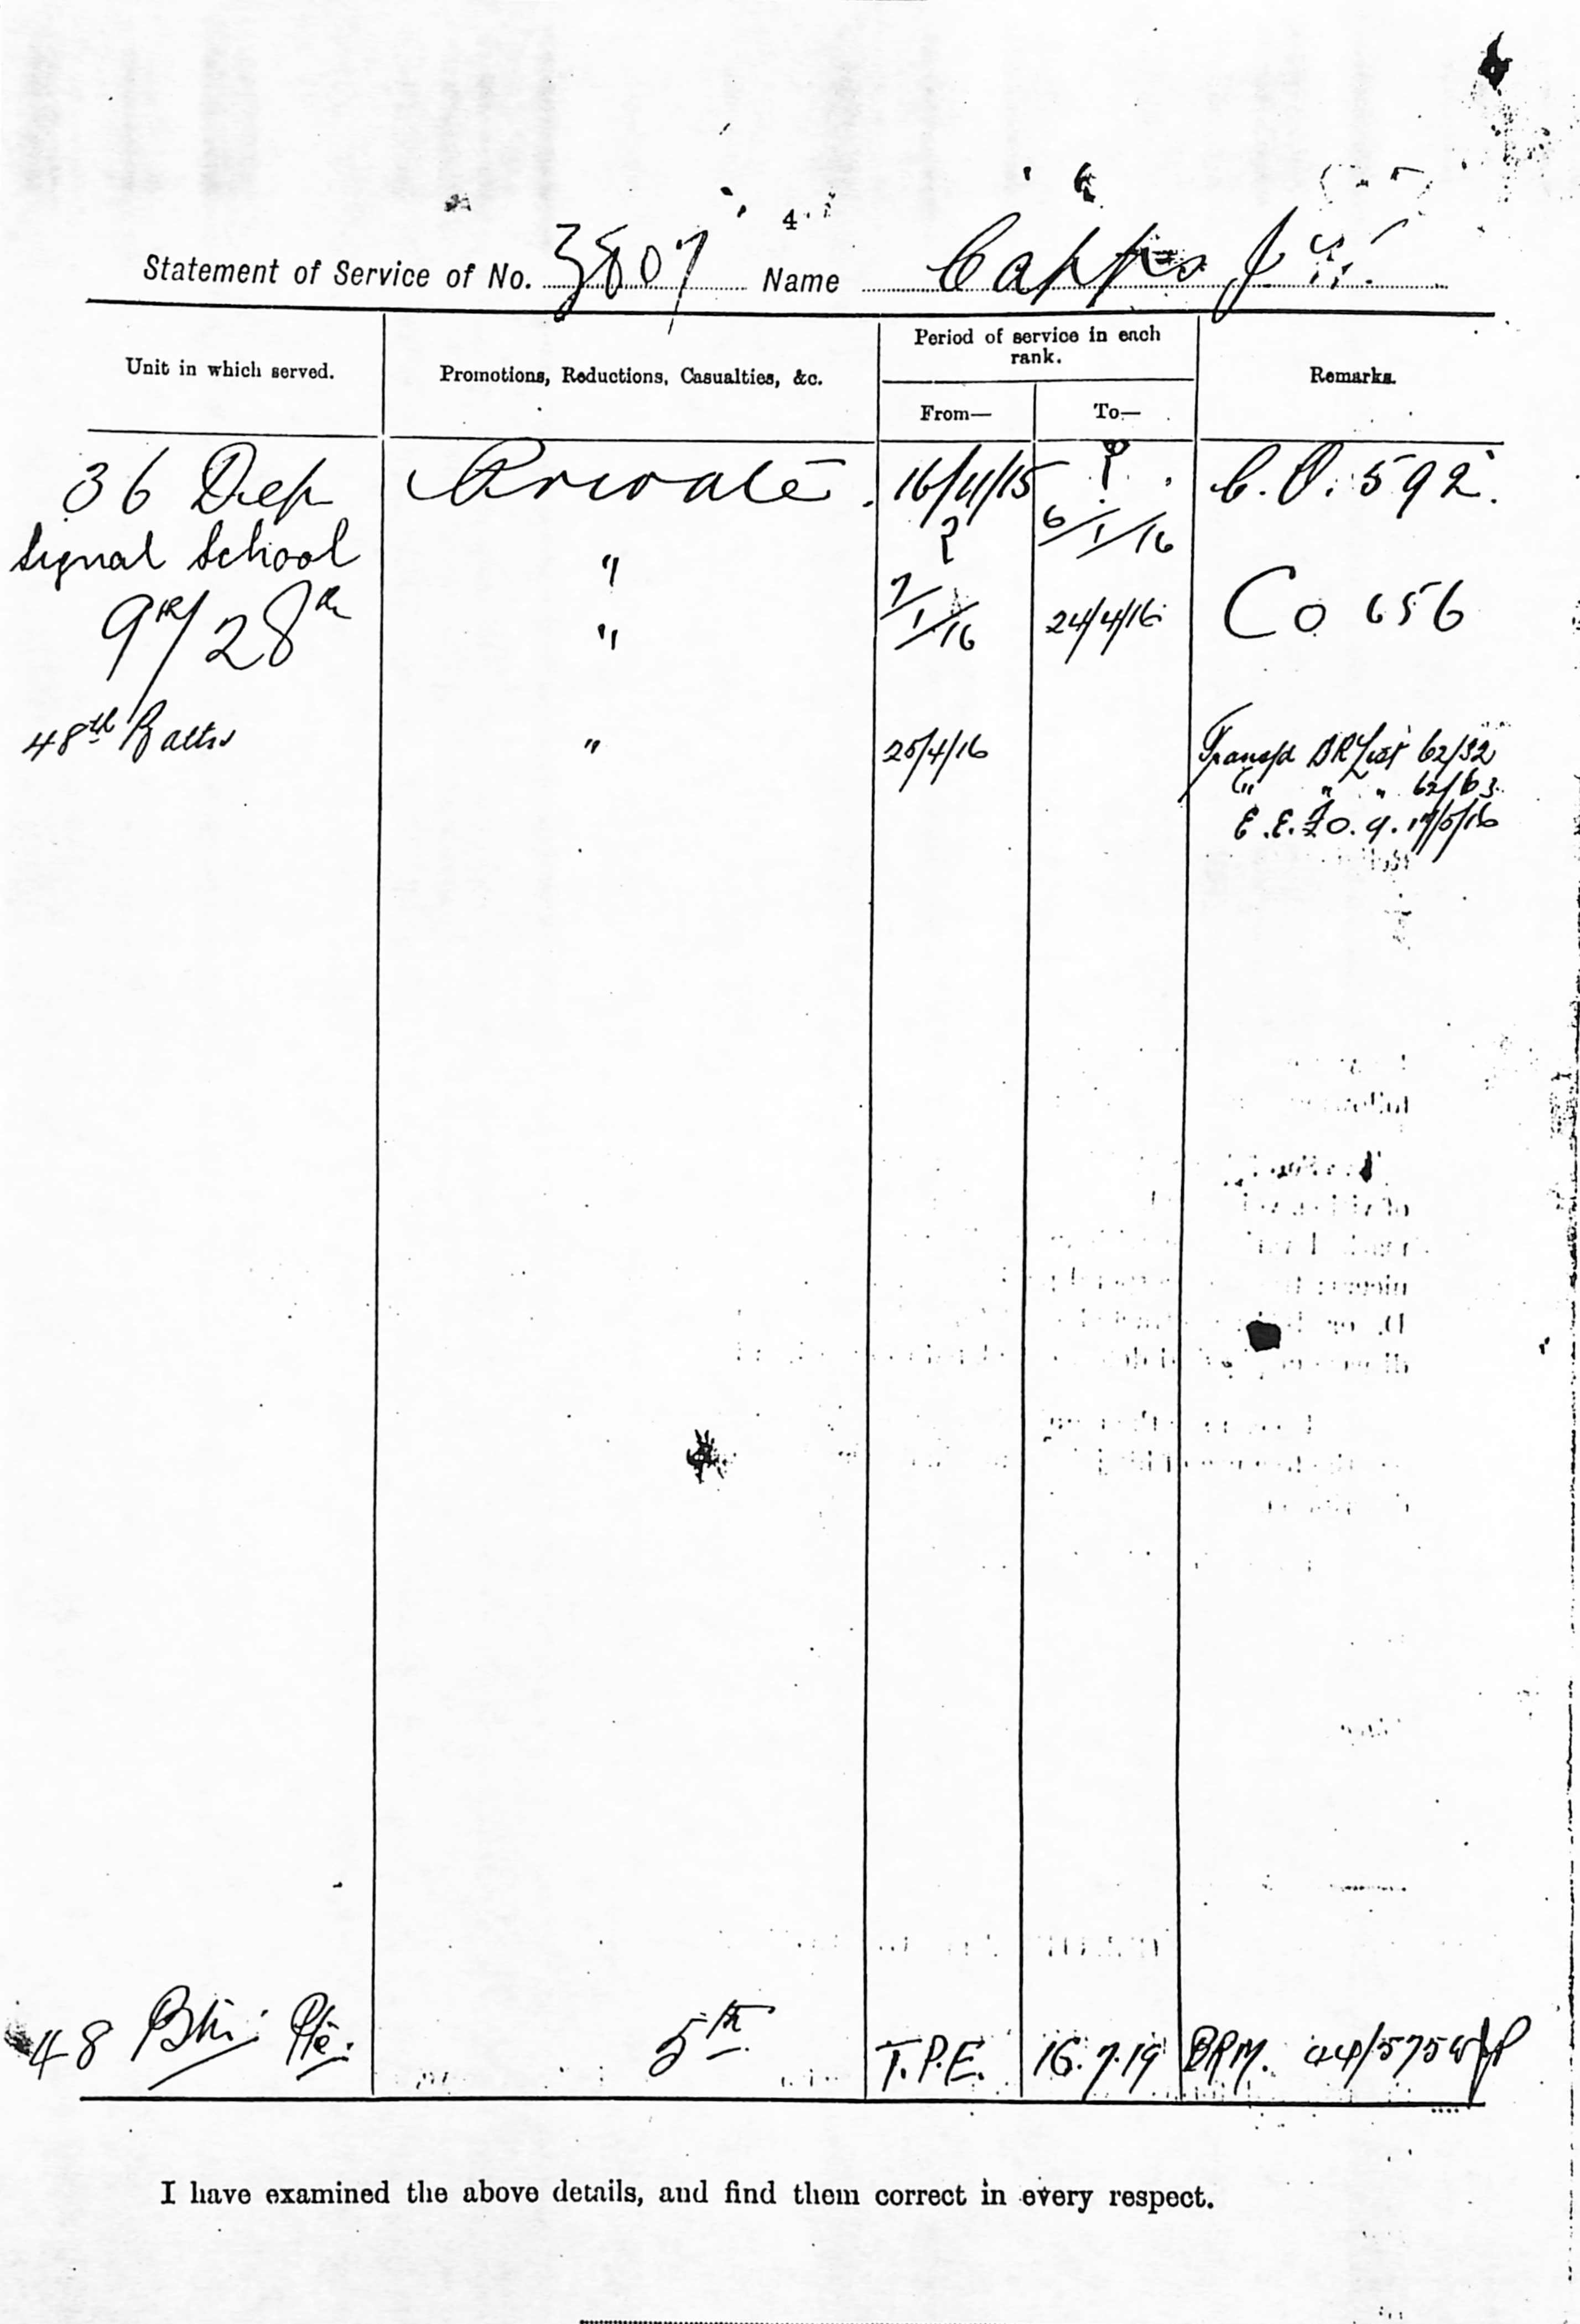 4
Statement of Service of No. 3807 Name Capps J
Unit in which served. Promotions, Reductions, Casualties, &c. Period of service in each rank. Remarks.
From— To—
36 Dep Private 16/11/15 ? C.O. 592.
Signal School " ? 6/1/16
9th/28th " 7/1/16 24/4/16 Co 656
48th Battn " 25/4/16 Transfd BR List 62/32
" " " 62/63
17/5/16
48 Btn: Pte: 5th T.P.E. 16.7.19 BRM.
I have examined the above details, and find them correct in every respect.